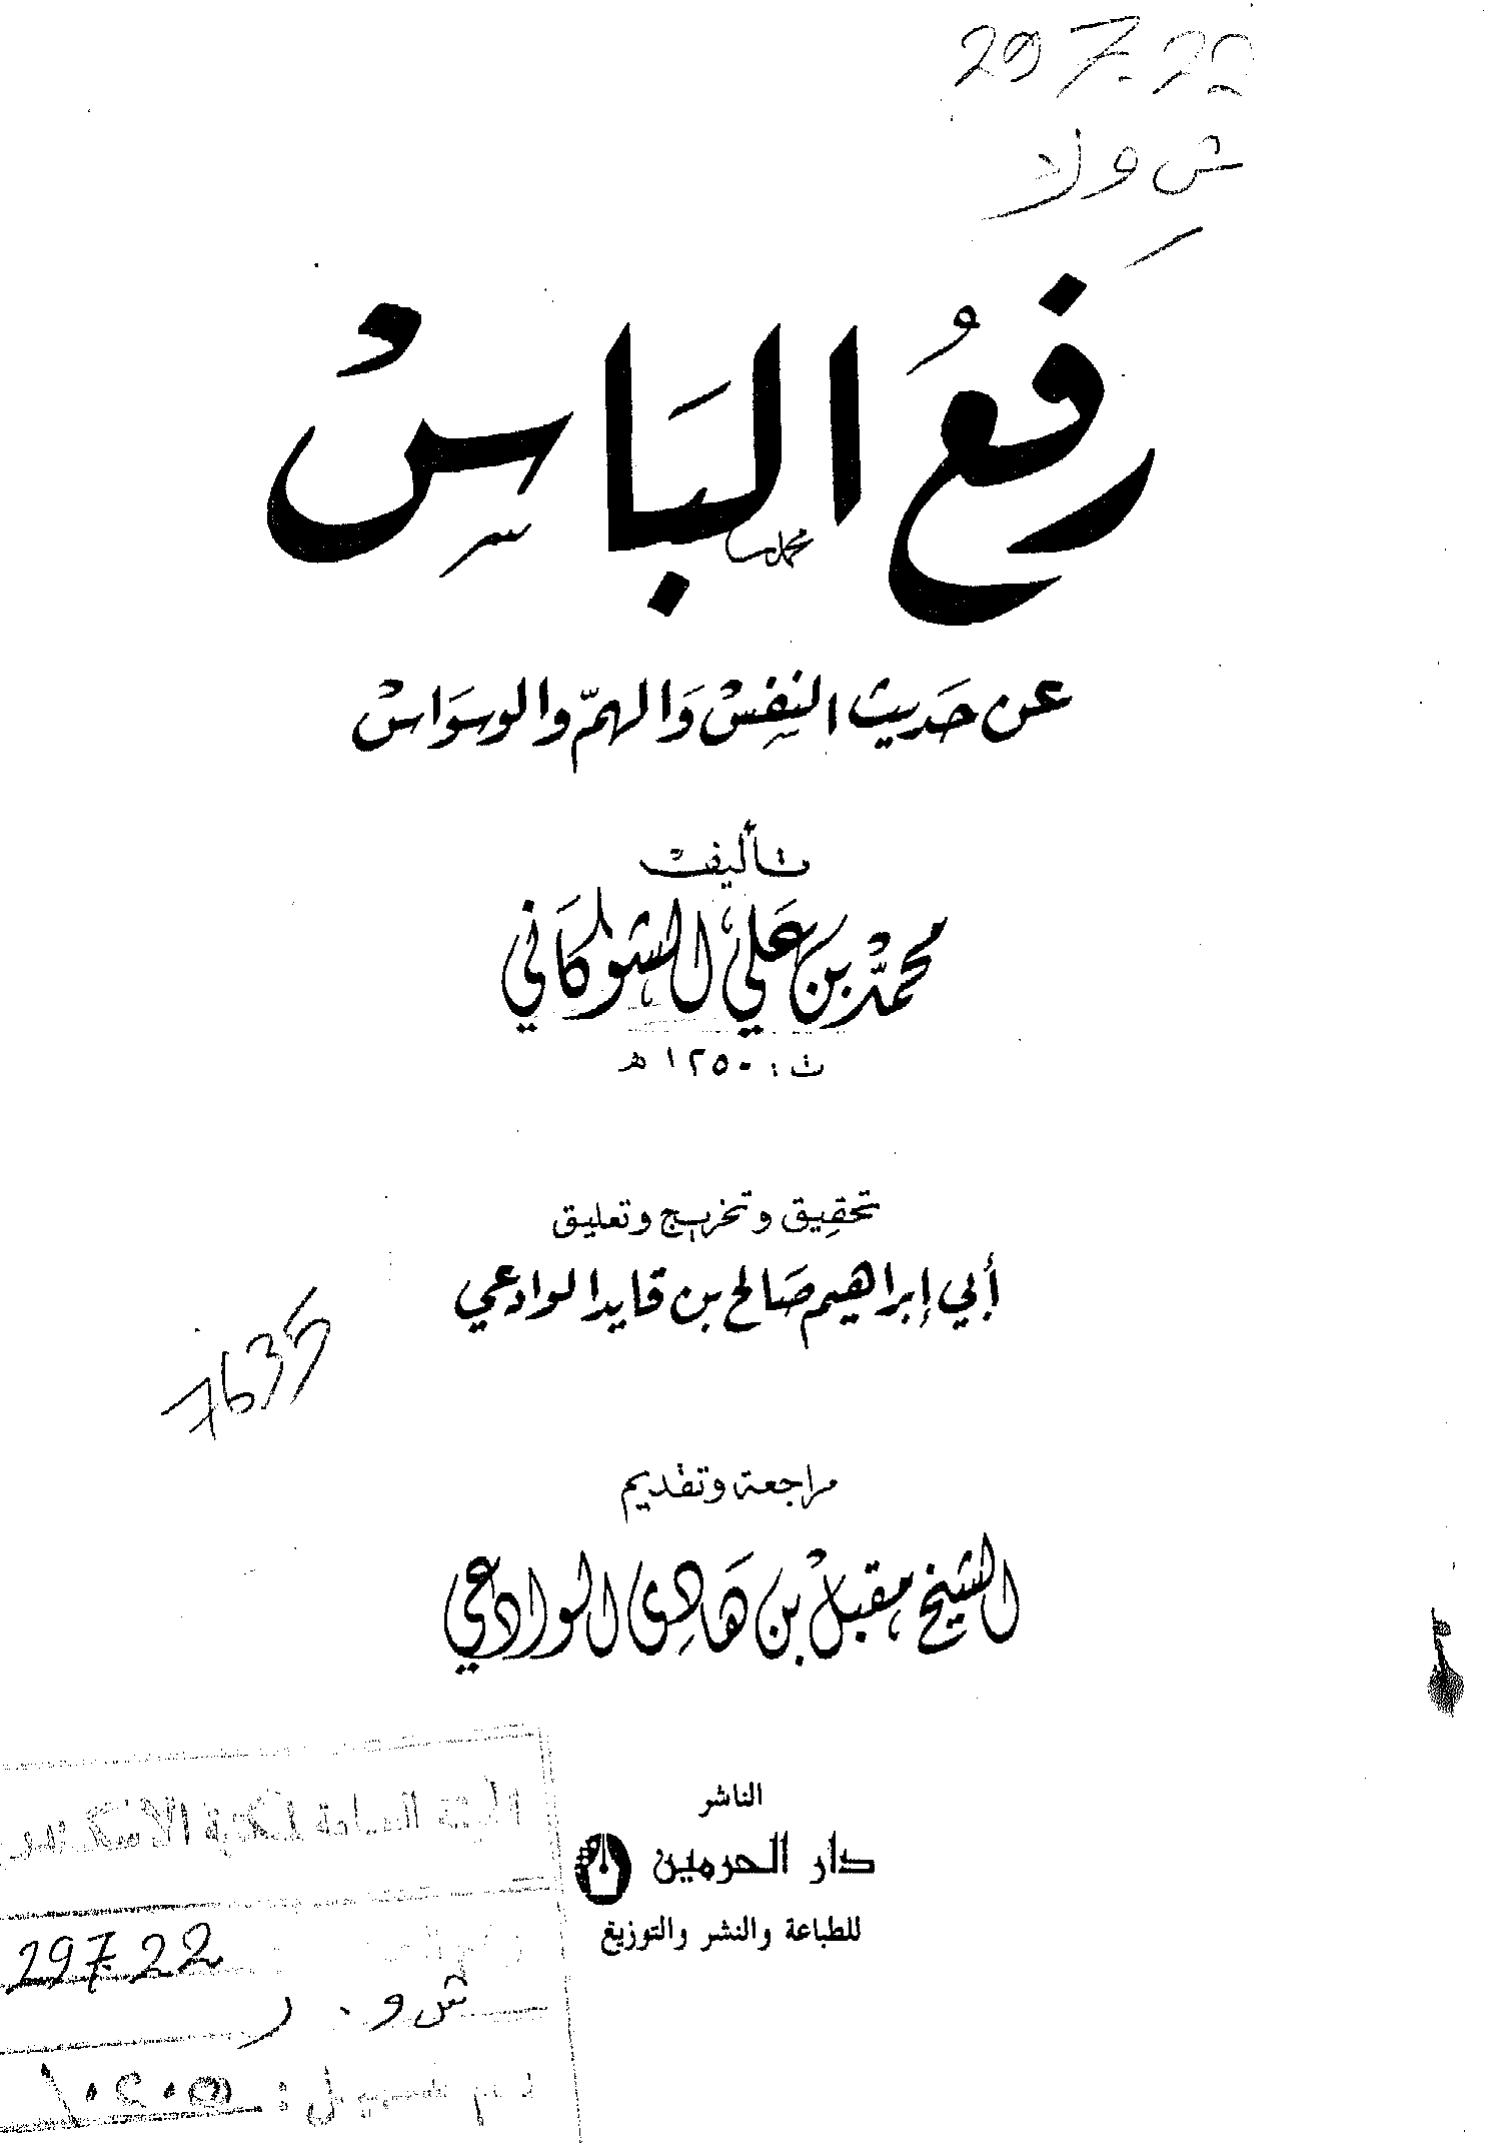 297.22
ش و لا
رَفعُ البَاسْ
عن حَديث النفِسْ وَالهمّ والوسوَاسْ
تأليفْ
محمّد بن عَلي الشوكَاني
ت : ١٢٥٠ هـ
تحقيق وتخريج وتعليق
أبي إبراهيم صَالح بن قايد الوادعي
7635
مراجعة وتقديم
الشيخ مقبل بن هَادِي الوادعي
الناشر
دار الحرمين
للطباعة والنشر والتوزيع
الهيئة العامة لمكتبة الاسكندر
297.22
ش و . ر